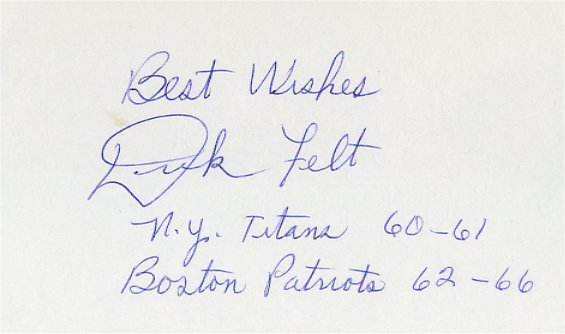 Best Wishes
Dick Felt
N.Y. Titans 60-61
Boston Patriots 62-66